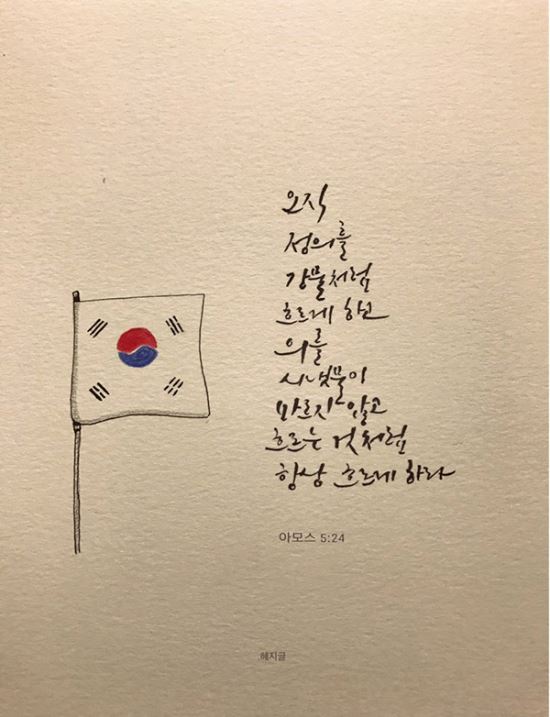 오직
정의를
강물처럼
흐르게 하고
의를
시냇물이
마르지 않고
흐르는 것처럼
항상 흐르게 하라
아모스 5:24
혜지글